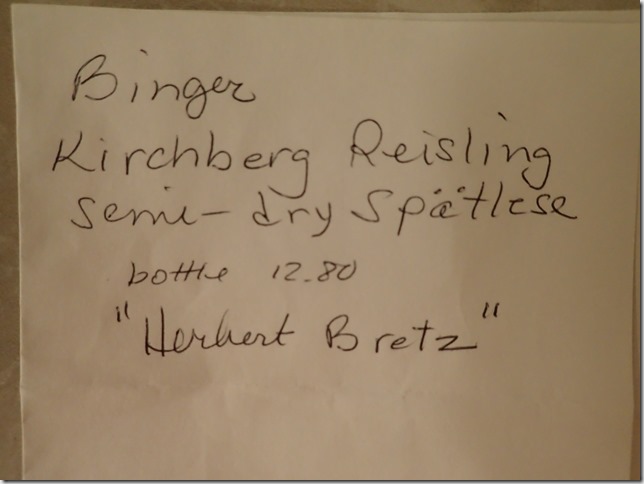 Binger
Kirchberg Reisling
semi-dry Spätlese
bottle 12.80
"Herbert Bretz"